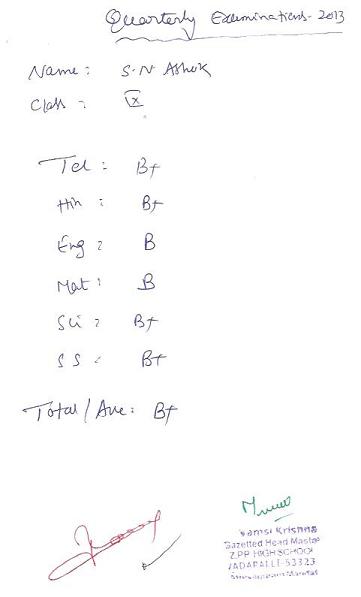 Quarterly Examinations- 2013
Name : S.N Ashok
Class : IX
Tel : B+
Hin : B+
Eng : B
Mat : B
Sci : B+
S S : B+
Total/Ave: B+
Vamsi Krishna
Gazetted Head Master
Z.P.P HIGH SCHOOL
VADAPALLI-53323